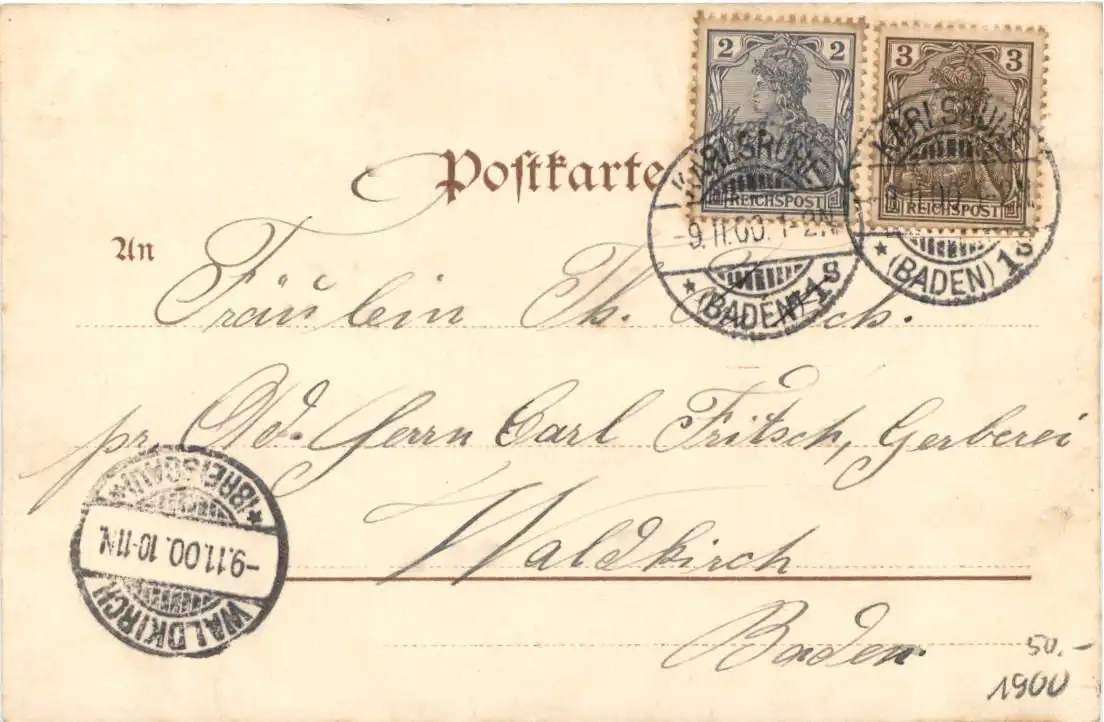 2 2
REICHSPOST
3 3
REICHSPOST
Postkarte
KARLSRUHE
-9.11.00. 1-2N
* (BADEN) 1S
KARLSRUHE
11.00. 1-2N
* (BADEN) 1S
An
Fräulein Th.
pr. Ad. Herrn Carl Fritsch, Gerberei
Waldkirch
Baden
WALDKIRCH
-9.11.00. 10-11N.
* (BREISGAU) *
50.-
1900